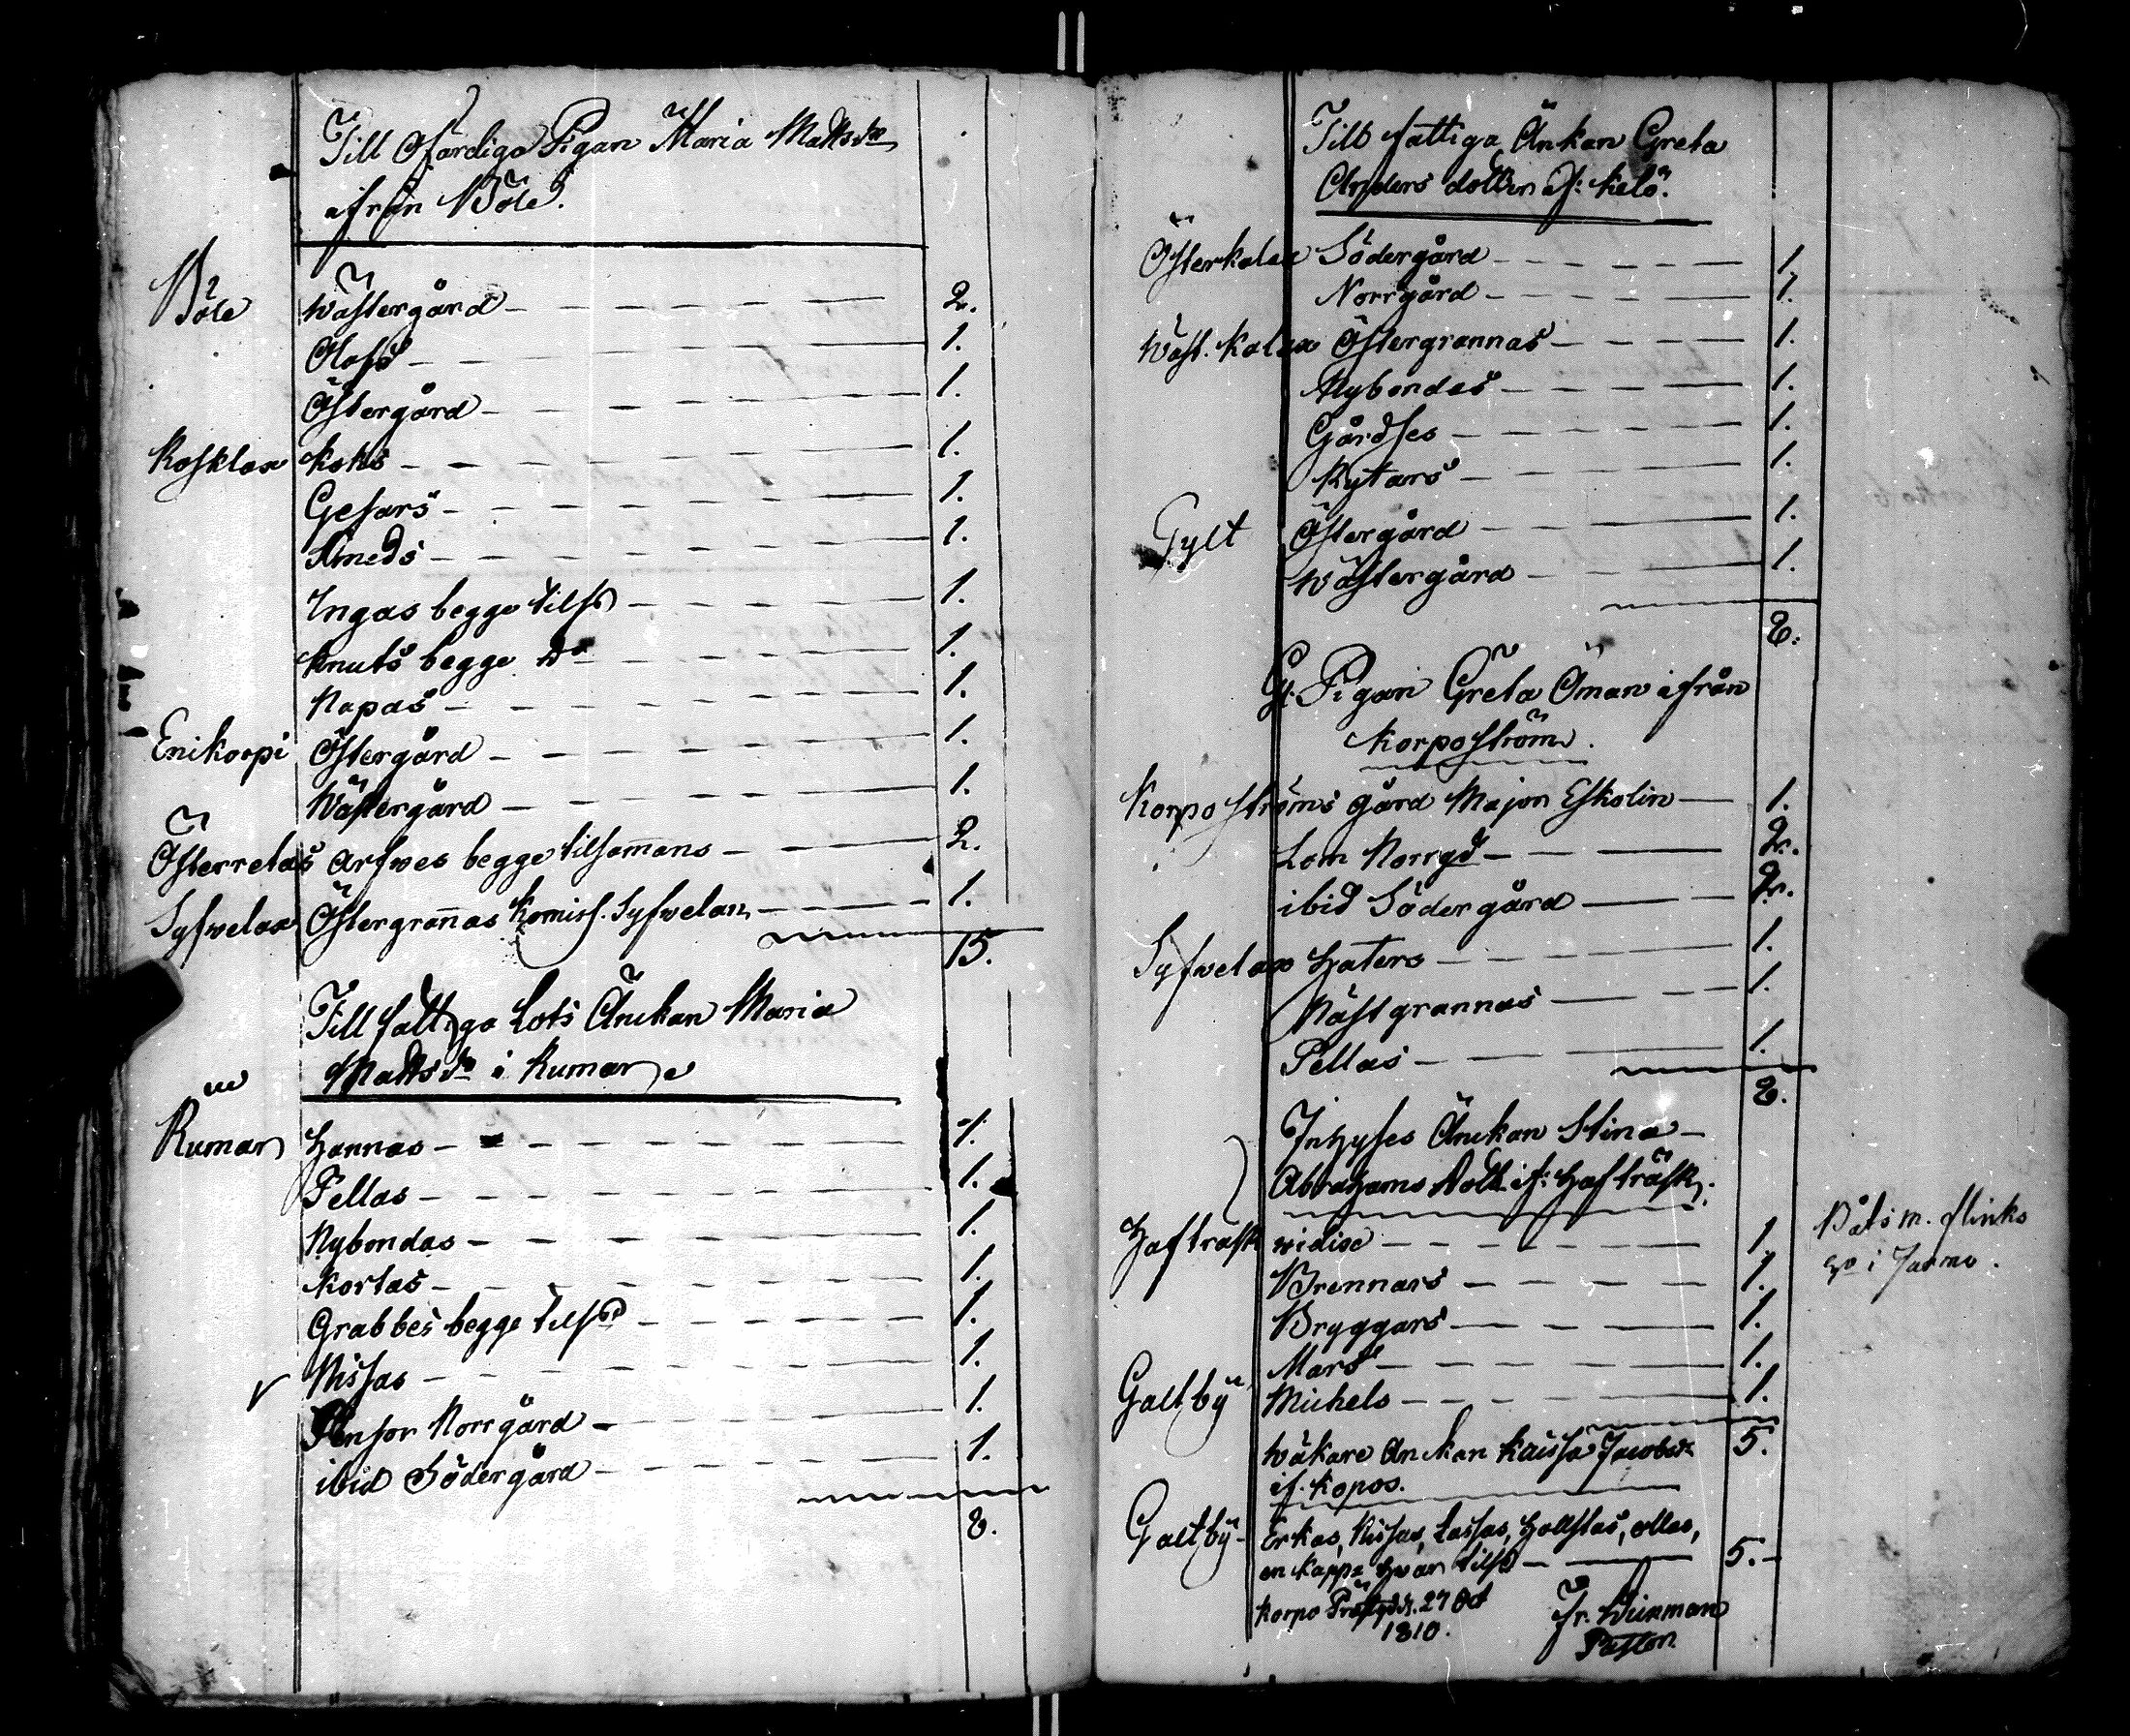 Till Ofärdiga Pigan Maria Mattsdr
ifrån Böle.
Böle Wästergård 2.
Olofs 1.
Östergård 1.
Rosklax Koks 1.
Gesars 1.
Smeds 1.
Ingas begge tils. 1.
Knuts begge Do 1.
Napas 1.
Enikorpi Östergård 1.
Wästergård 1.
Österretais Arfwes begge tilsamans 2.
Syfwelax Östergrañas Komiss. Syfwelan 1.
15.
Till fattiga Lots Änckan Maria
Mattsdr i Rumar
Rumar Hannas 1.
Pellas 1.
Nybondas 1.
Kortas 1.
Grabbes begge tils. 1.
Nissas 1.
Norrgård 1.
ibid Södergård 1.
8.
Till fattiga Änkan Greta
Anders dotter if: Kelö.
Österkalax Södergård 1.
Norrgård 1.
Wäst. Kalax Östergrannas 1.
Nybondes 1.
Gårdses 1.
Rytars 1.
Gylt Östergård 1.
Wästergård 1.
8.
G. Pigan Greta Öman ifrån
Korpoström.
Korpo ströms gård Major Eskolin 1.
Lom Norrgd 2.
ibid Södergård 2.
Syfwelax Haters 1.
Näst grannas 1.
Pellas 1.
8.
Inhyses Änckan Stina
Abrahams Dott. if: Hafträsk.
Hafträsk widise 1
Brennars 1.
Bryggars 1.
Mars 1.
Galtby Michels 1.
Båtsm. flinks
i Jarmo.
5.
Wäkare Anckan Kaissa Jacobsdr
if. Kopos.
Galtby Erkas, Nissas, Lassas, Hollstas, ollas,
en kappe hwar tils. 5.
Korpo Prästgd d. 27 Oct
1810.
Fr. Weinman
Pastor